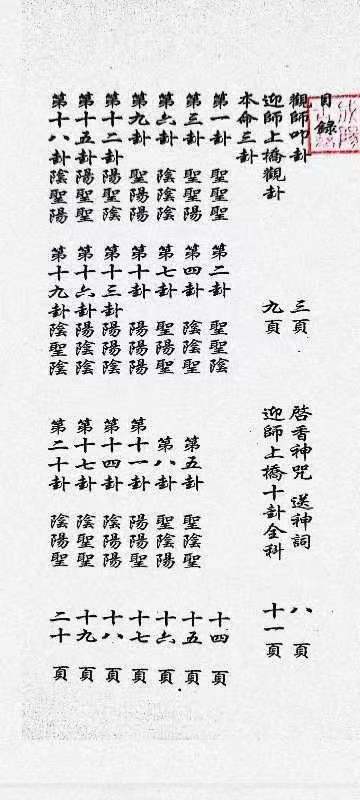 目錄
觀師叩卦 三頁 啓香神咒 送神詞 八頁
迎師上橋觀卦 九頁 迎師上橋十卦全科 十一頁
本命三卦
第一卦 聖聖聖 第二卦 聖聖陰 十四頁
第三卦 聖聖陽 第四卦 陰聖聖 第五卦 聖陰聖 十五頁
第六卦 陰陰陰 第七卦 聖陽聖 第八卦 聖陰陽 十六頁
第九卦 聖陽陽 第十卦 陽陽聖 第十一卦 陽陽聖 十七頁
第十二卦 陽聖陰 第十三卦 陽陽陽 第十四卦 陰陰陽 十八頁
第十五卦 陽聖聖 第十六卦 陽陰陰 第十七卦 陰聖聖 十九頁
第十八卦 陰聖陽 第十九卦 陰聖陰 第二十卦 陰陽聖 二十頁